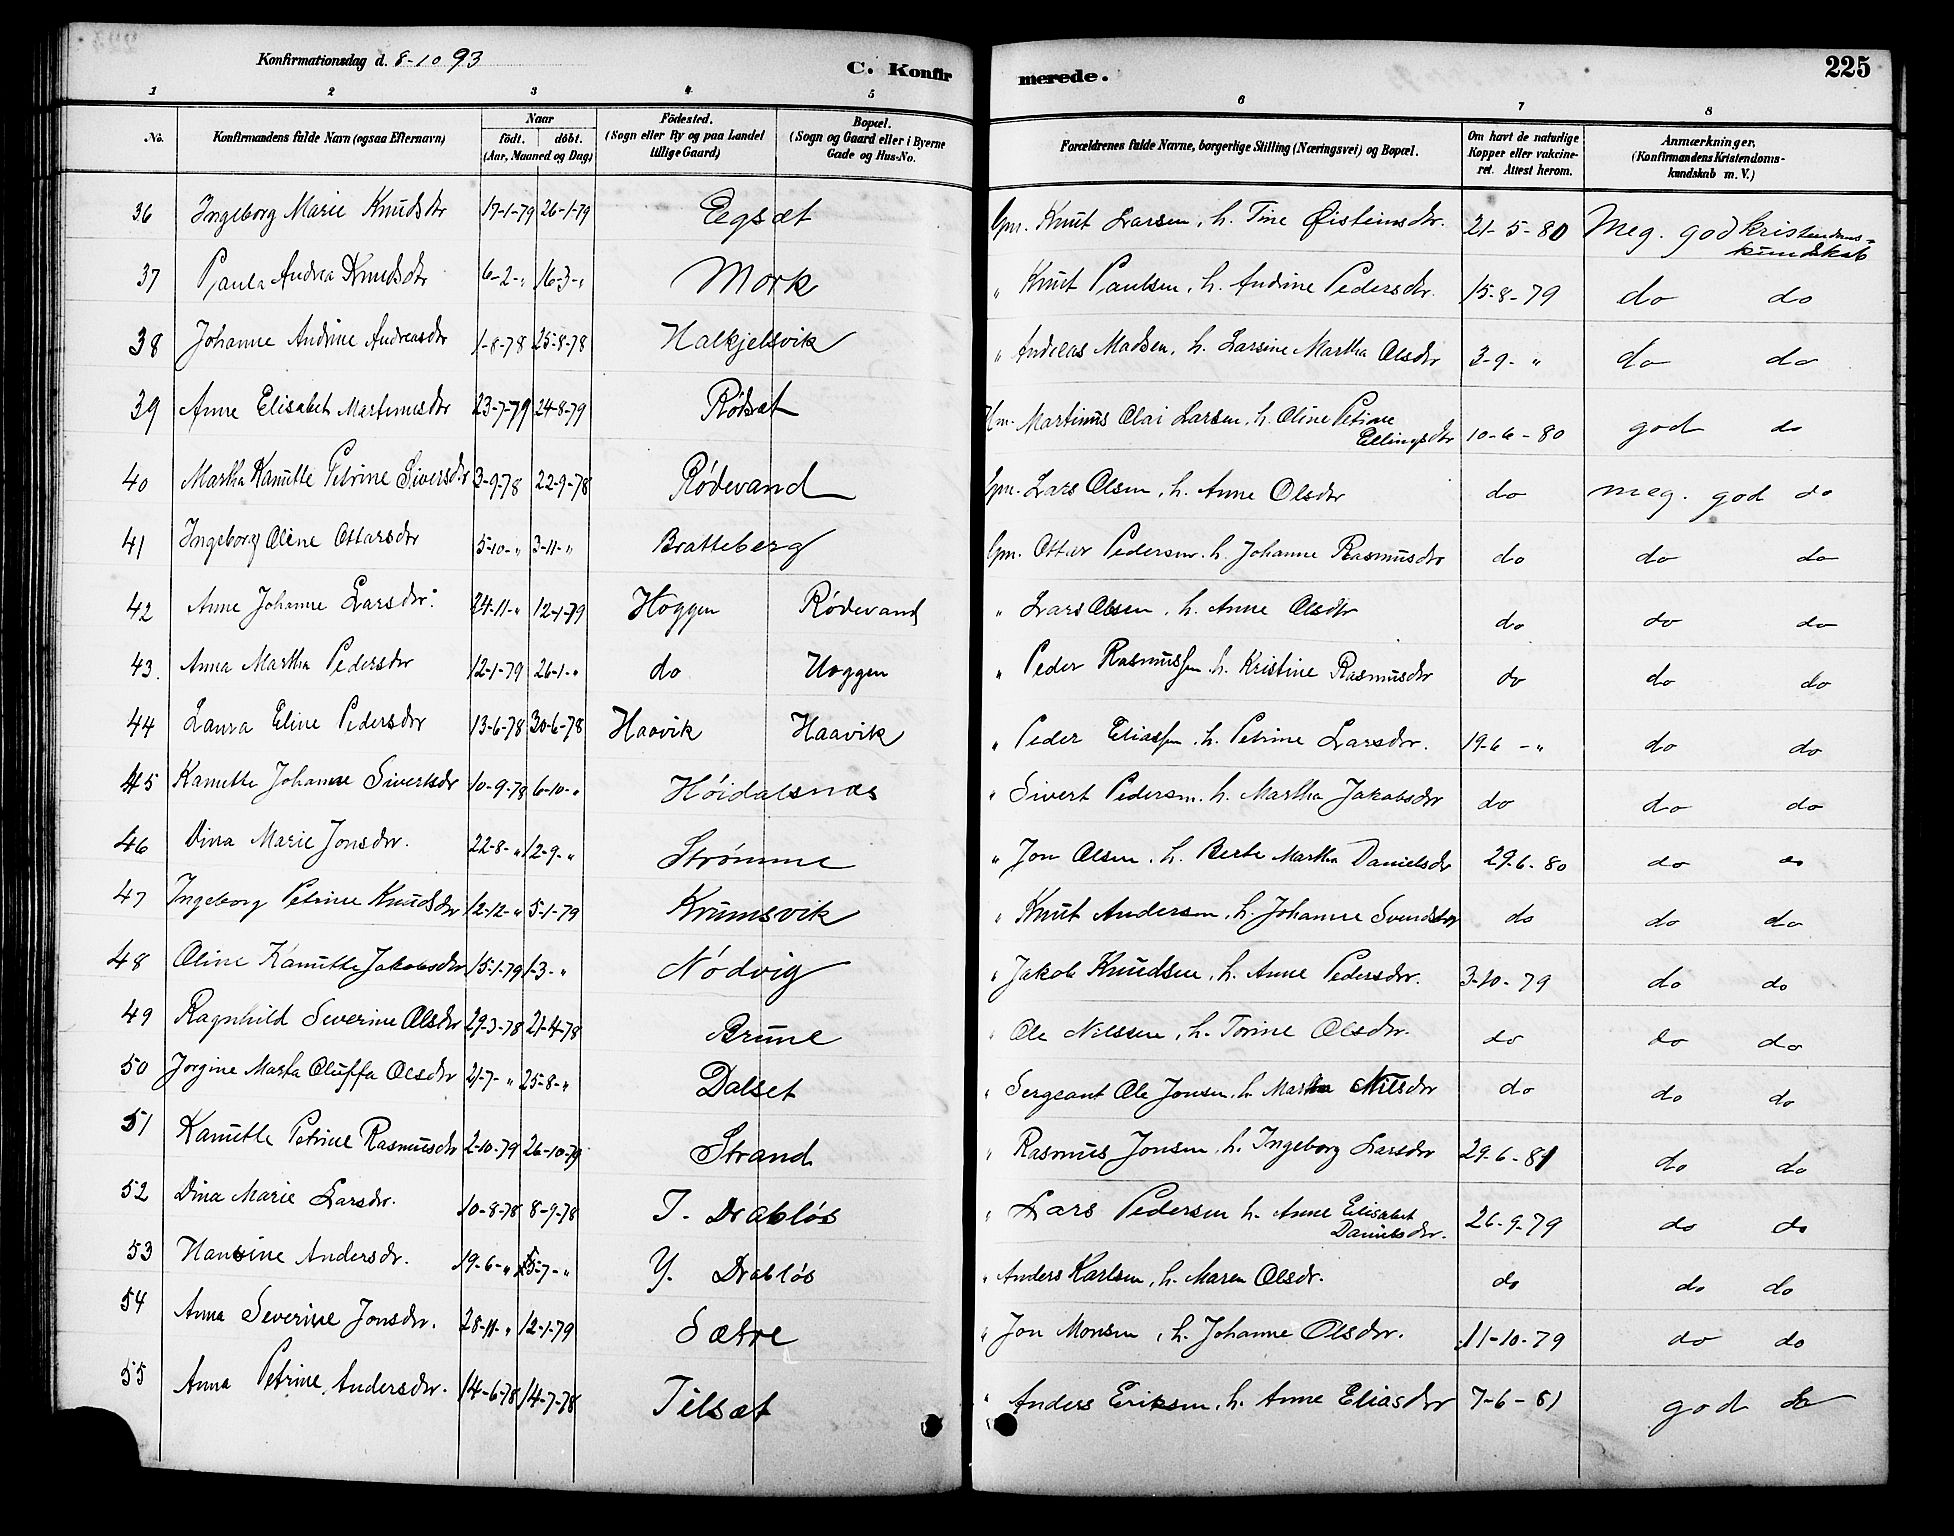 Konfirmationsdag d. 8-10 93
C. Konfirmerede.
225
1 2 3 4 5 6 7 8
No. Konfirmandens fulde Navn (egsaa Efternavn) Naar født. døbt. (Aar, Maaned og Dag) Födested. (Sogn eller By og paa Landet tillige Gaard) Bopæl. (Sogn og Gaard eller i Byerne Gade og Hus-No. Forældrenes fulde Navne, borgerlige Stilling (Næringsvei) og Bopæl. Om havt de naturlige Kopper eller vakcineret. Attest herom. Anmærkninger. (Konfirmandens Kristendomskundskab m. V.)
36 Ingeborg Marie Knudsdtr 17-1-79 26-1-79 Egsæt Gm. Knut Larsen, h. Tine Øisteinsdtr. 21-5-80 Meg. god kristendomskundskab
37 Paula Andrea Knudsdtr 6-2-" 16-3-" Mork " Knut Paulsen, h. Andrine Pedersdtr. 15-8-79 do do
38 Johanne Andrine Andreasdtr 1-8-78 25-8-78 Halkjelsvik " Andreas Madsen, h. Larsine Martha Olsdtr 3-9-" do do
39 Anne Elisabet Martinusdtr 23-7-79 24-8-79 Rødsæt Hm. Martinus Olai Larsen, h. Oline Petrine Ellingsdtr 10-6-80 god do
40 Martha Kanutte Petrine Siversdtr 3-9-78 22-9-78 Rødevand Gm. Lars Olsen, h. Anne Olsdtr do meg. god do
41 Ingeborg Oline Ottarsdtr 5-10-" 3-11-" Bratteberg Gm. Ottar Pedersen. h. Johanne Rasmusdtr do do do
42 Anne Johanne Larsdtr. 24-11-" 12-1-79 Hoggen Rødevand " Lars Olsen, h. Anne Olsdtr do do do
43. Anna Martha Pedersdtr 12-1-79 26-1-" do Hoggen " Peder Rasmussen h. Kristine Rasmusdtr do do do
44 Laura Eline Pedersdtr 13-6-78 30-6-78 Haavik Haavik " Peder Eliassen. h. Petrine Larsdtr. 19-6-" do do
45 Kanutte Johanne Sivertsdtr 10-9-78 6-10-" Høidalsnæs " Sivert Pedersen. h. Martha Jakobsdtr do do do
46 Dina Marie Jonsdtr. 22-8-" 12-9-" Strømme " Jon Olsen. h. Berte Martha Danielsdtr 29-6-80 do do
47 Ingeborg Petrine Knudsdtr 12-12-" 5-1-79 Krumsvik " Knut Andersen, h. Johanne Svendsdtr do do do
48 Oline Kanutte Jakobsdtr 15-1-79 1-3-" Nødvig " Jakob Knudsen, h. Anne Pedersdtr. 3-10-79 do do
49 Ragnhild Severine Olsdtr 29-3-78 21-4-78 Brune " Ole Nilssen, h. Torine Olsdtr. do do do
50 Jørgine Marta Oluffa Olsdtr 21-7-" 25-8-" Dalset " Sergeant Ole Jonsen, h. Martha Nilsdtr do do do
51 Kanutte Petrine Rasmusdtr 2-10-79 26-10-79 Strand " Rasmus Jonsen h. Ingeborg Larsdtr 29-6-81 do do
52 Dina Marie Larsdtr. 10-8-78 8-9-78 I. Drabløs " Lars Pedersen h. Anne Elisabet Danielsdtr. 26-9-79 do do
53 Hansine Andersdr. 19-6-" 15-7-" Y. Drabløs " Anders Karlsen, h. Maren Olsdr. do do do
54 Anna Severine Jonsdtr. 28-11-" 12-1-79 Sætre " Jon Monsen, h. Johanne Olsdtr. 11-10-79 do do
55 Anna Petrine Andersdtr. 14-6-78 14-7-78 Tilsæt " Anders Eriksen, h. Anne Eliasdtr 7-6-81 god do